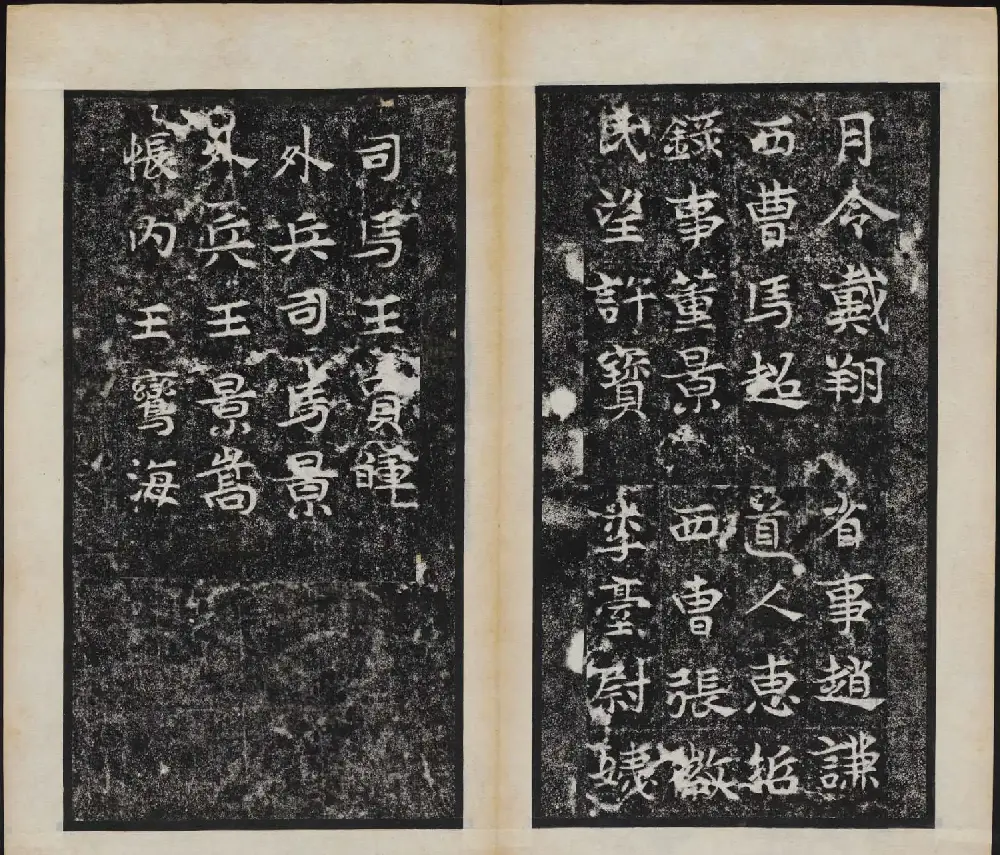 月令戴翔 省事趙謙
西曹馬超 道人惠哲
錄事董景 西曹張敬
民望許寶 季臺尉
司馬王賓暉
外兵司馬景
外兵王景嵩
帳內王鸞海